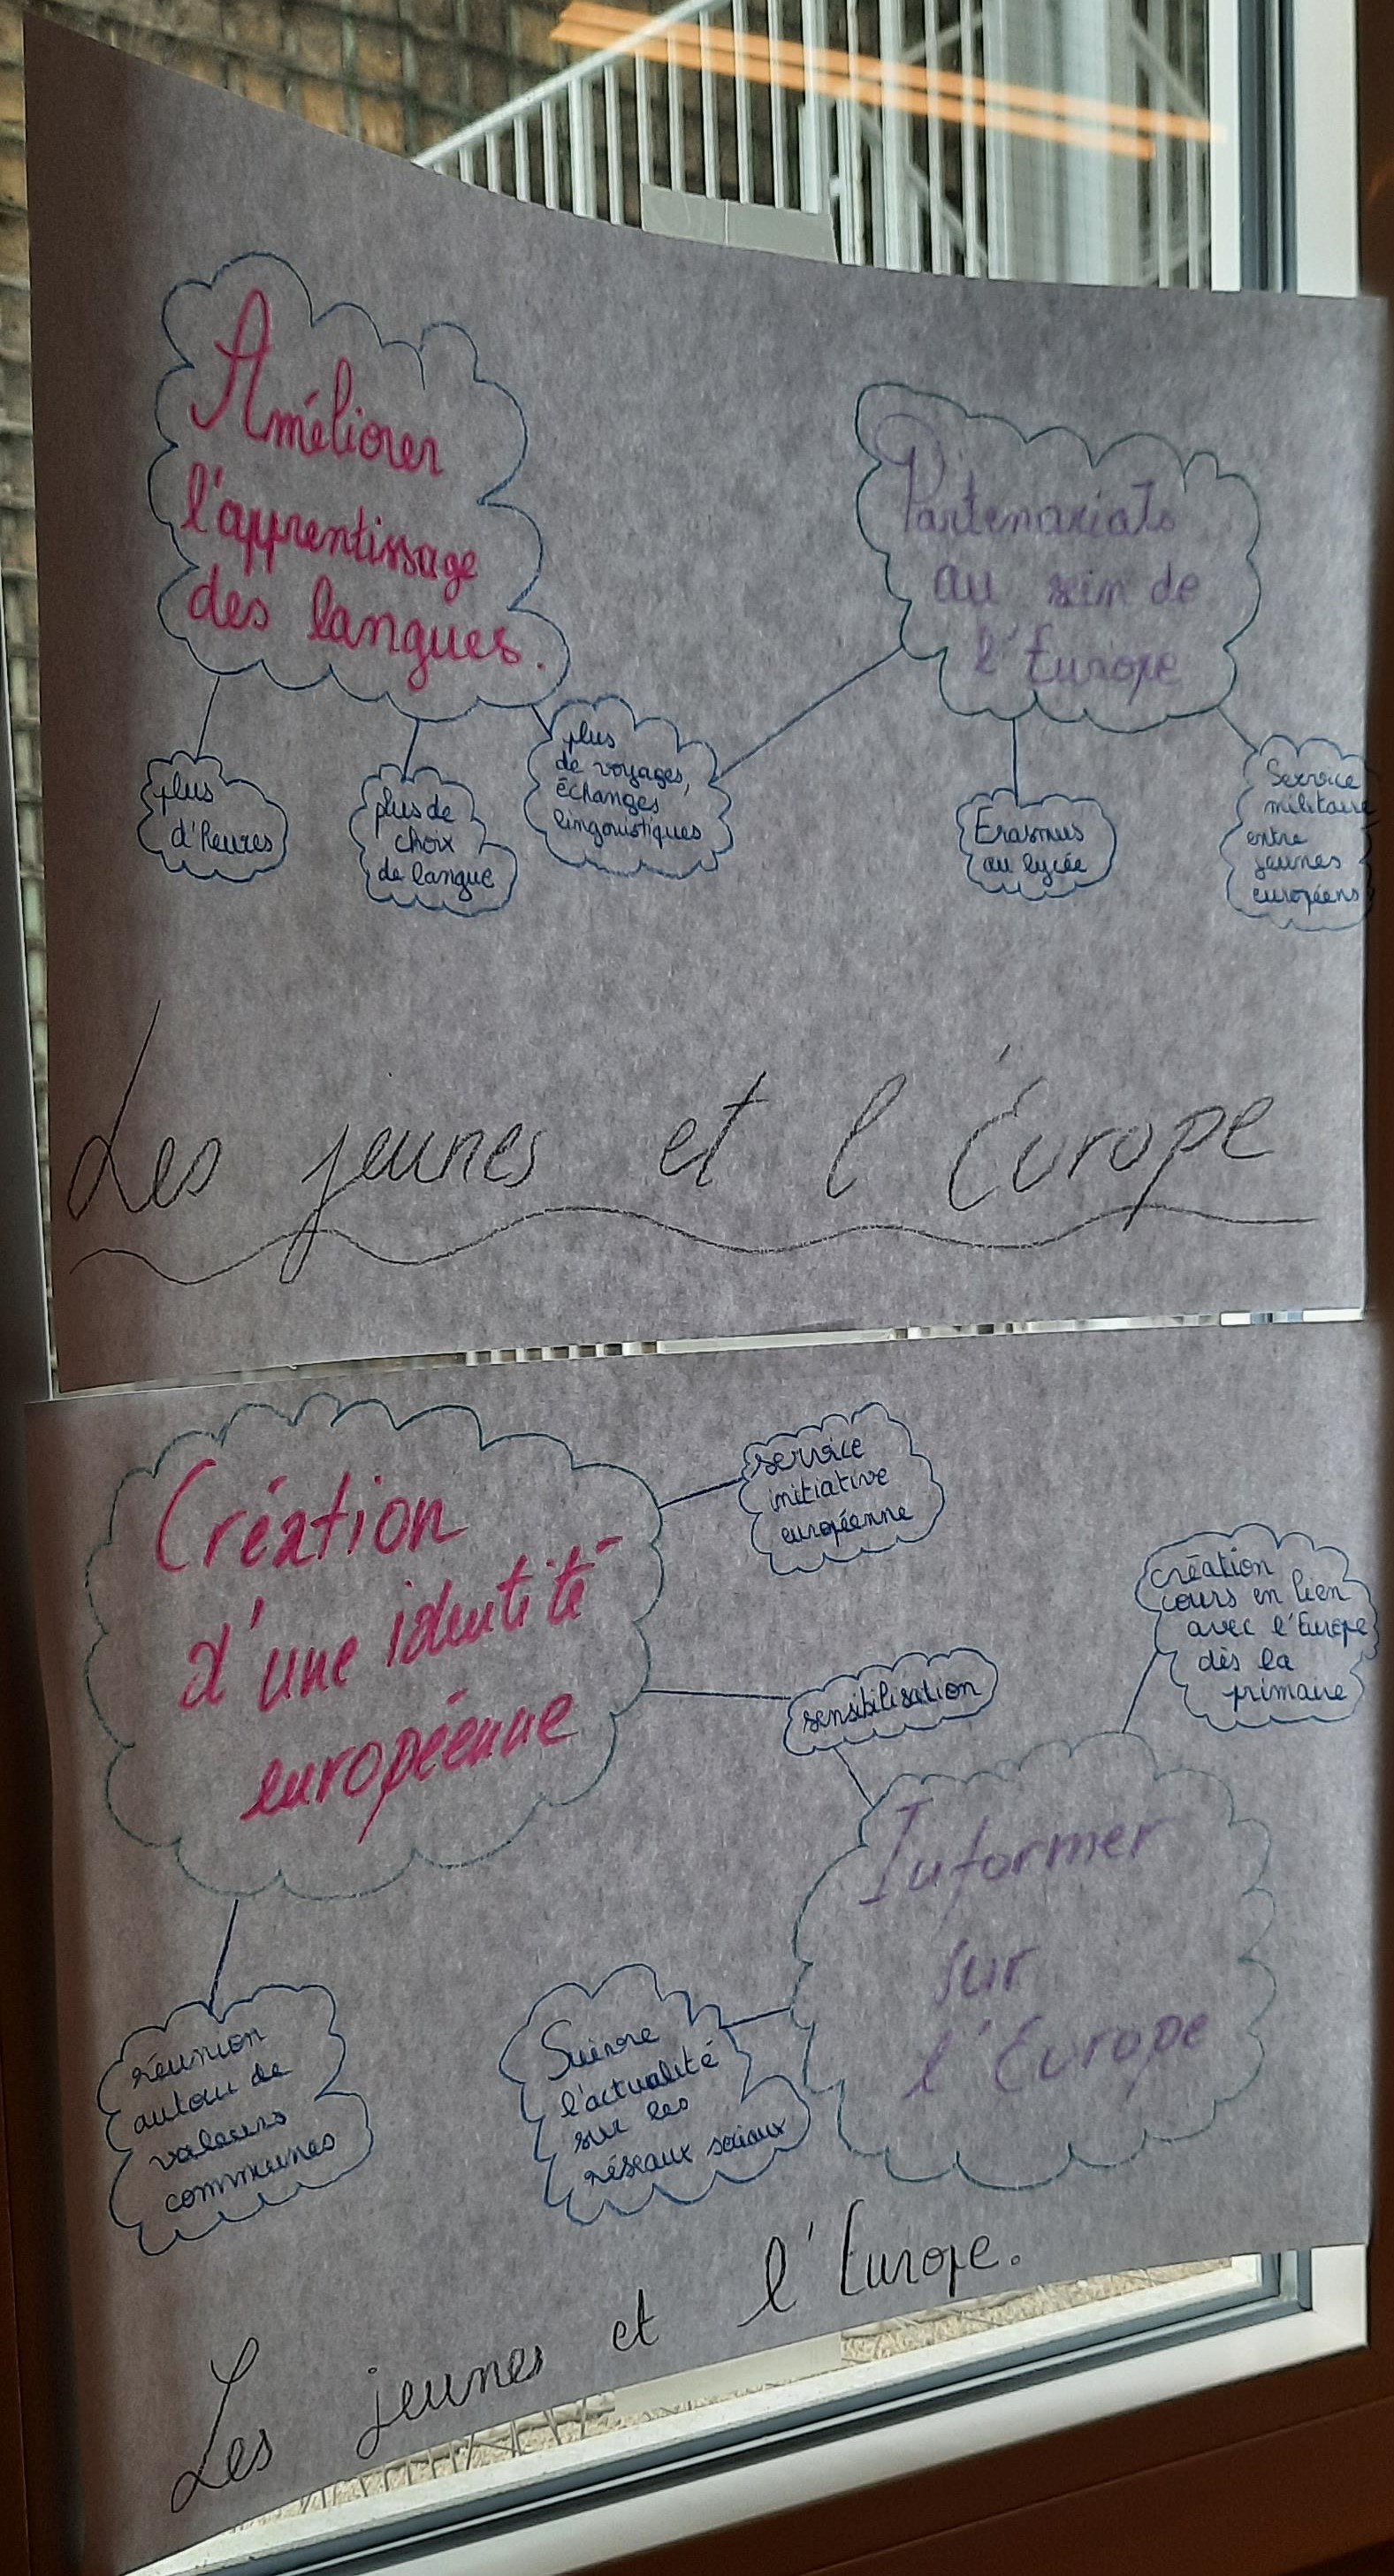 Améliorer
l'apprentissage
des langues.
Partenariats
au sein de
l'Europe
plus
d'heures
plus de
choix
de langue
plus
de voyages,
échanges
linguistiques
Erasmus
au lycée
Service
militaire
entre
jeunes
européens
Les jeunes et l'Europe
Création
d'une identité
européenne
service
initiative
européenne
création
cours en lien
avec l'Europe
dès la
primaire
sensibilisation
Informer
sur
l'Europe
réunion
autour de
valeurs
communes
Suivre
l'actualité
sur les
réseaux sociaux
Les jeunes et l'Europe.